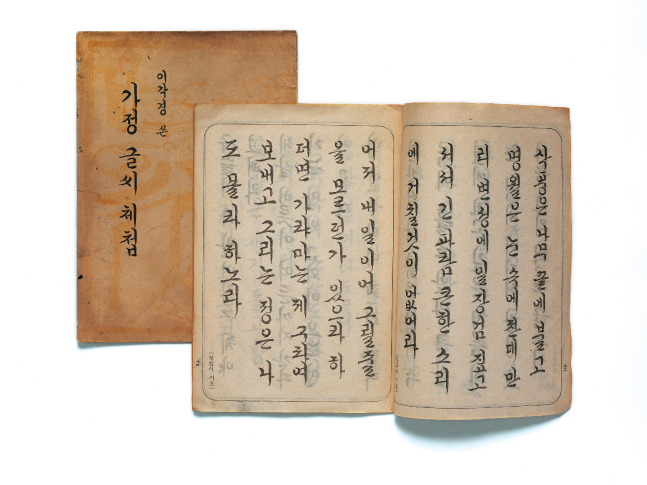 이각경 쓴
가정 글씨 체첩
삭풍은 나무 끝에 불고
명월은 눈 속에 찬데 만
리 변성에 일장검 집고
서서 긴 파람 큰 한 소리
에 거칠것이 없에라
어져 내 일이어 그릴줄
을 모르던가 있으라 하
더면 가랴마는 제 구타여
보내고 그리는 정은 나
도 몰라 하노라